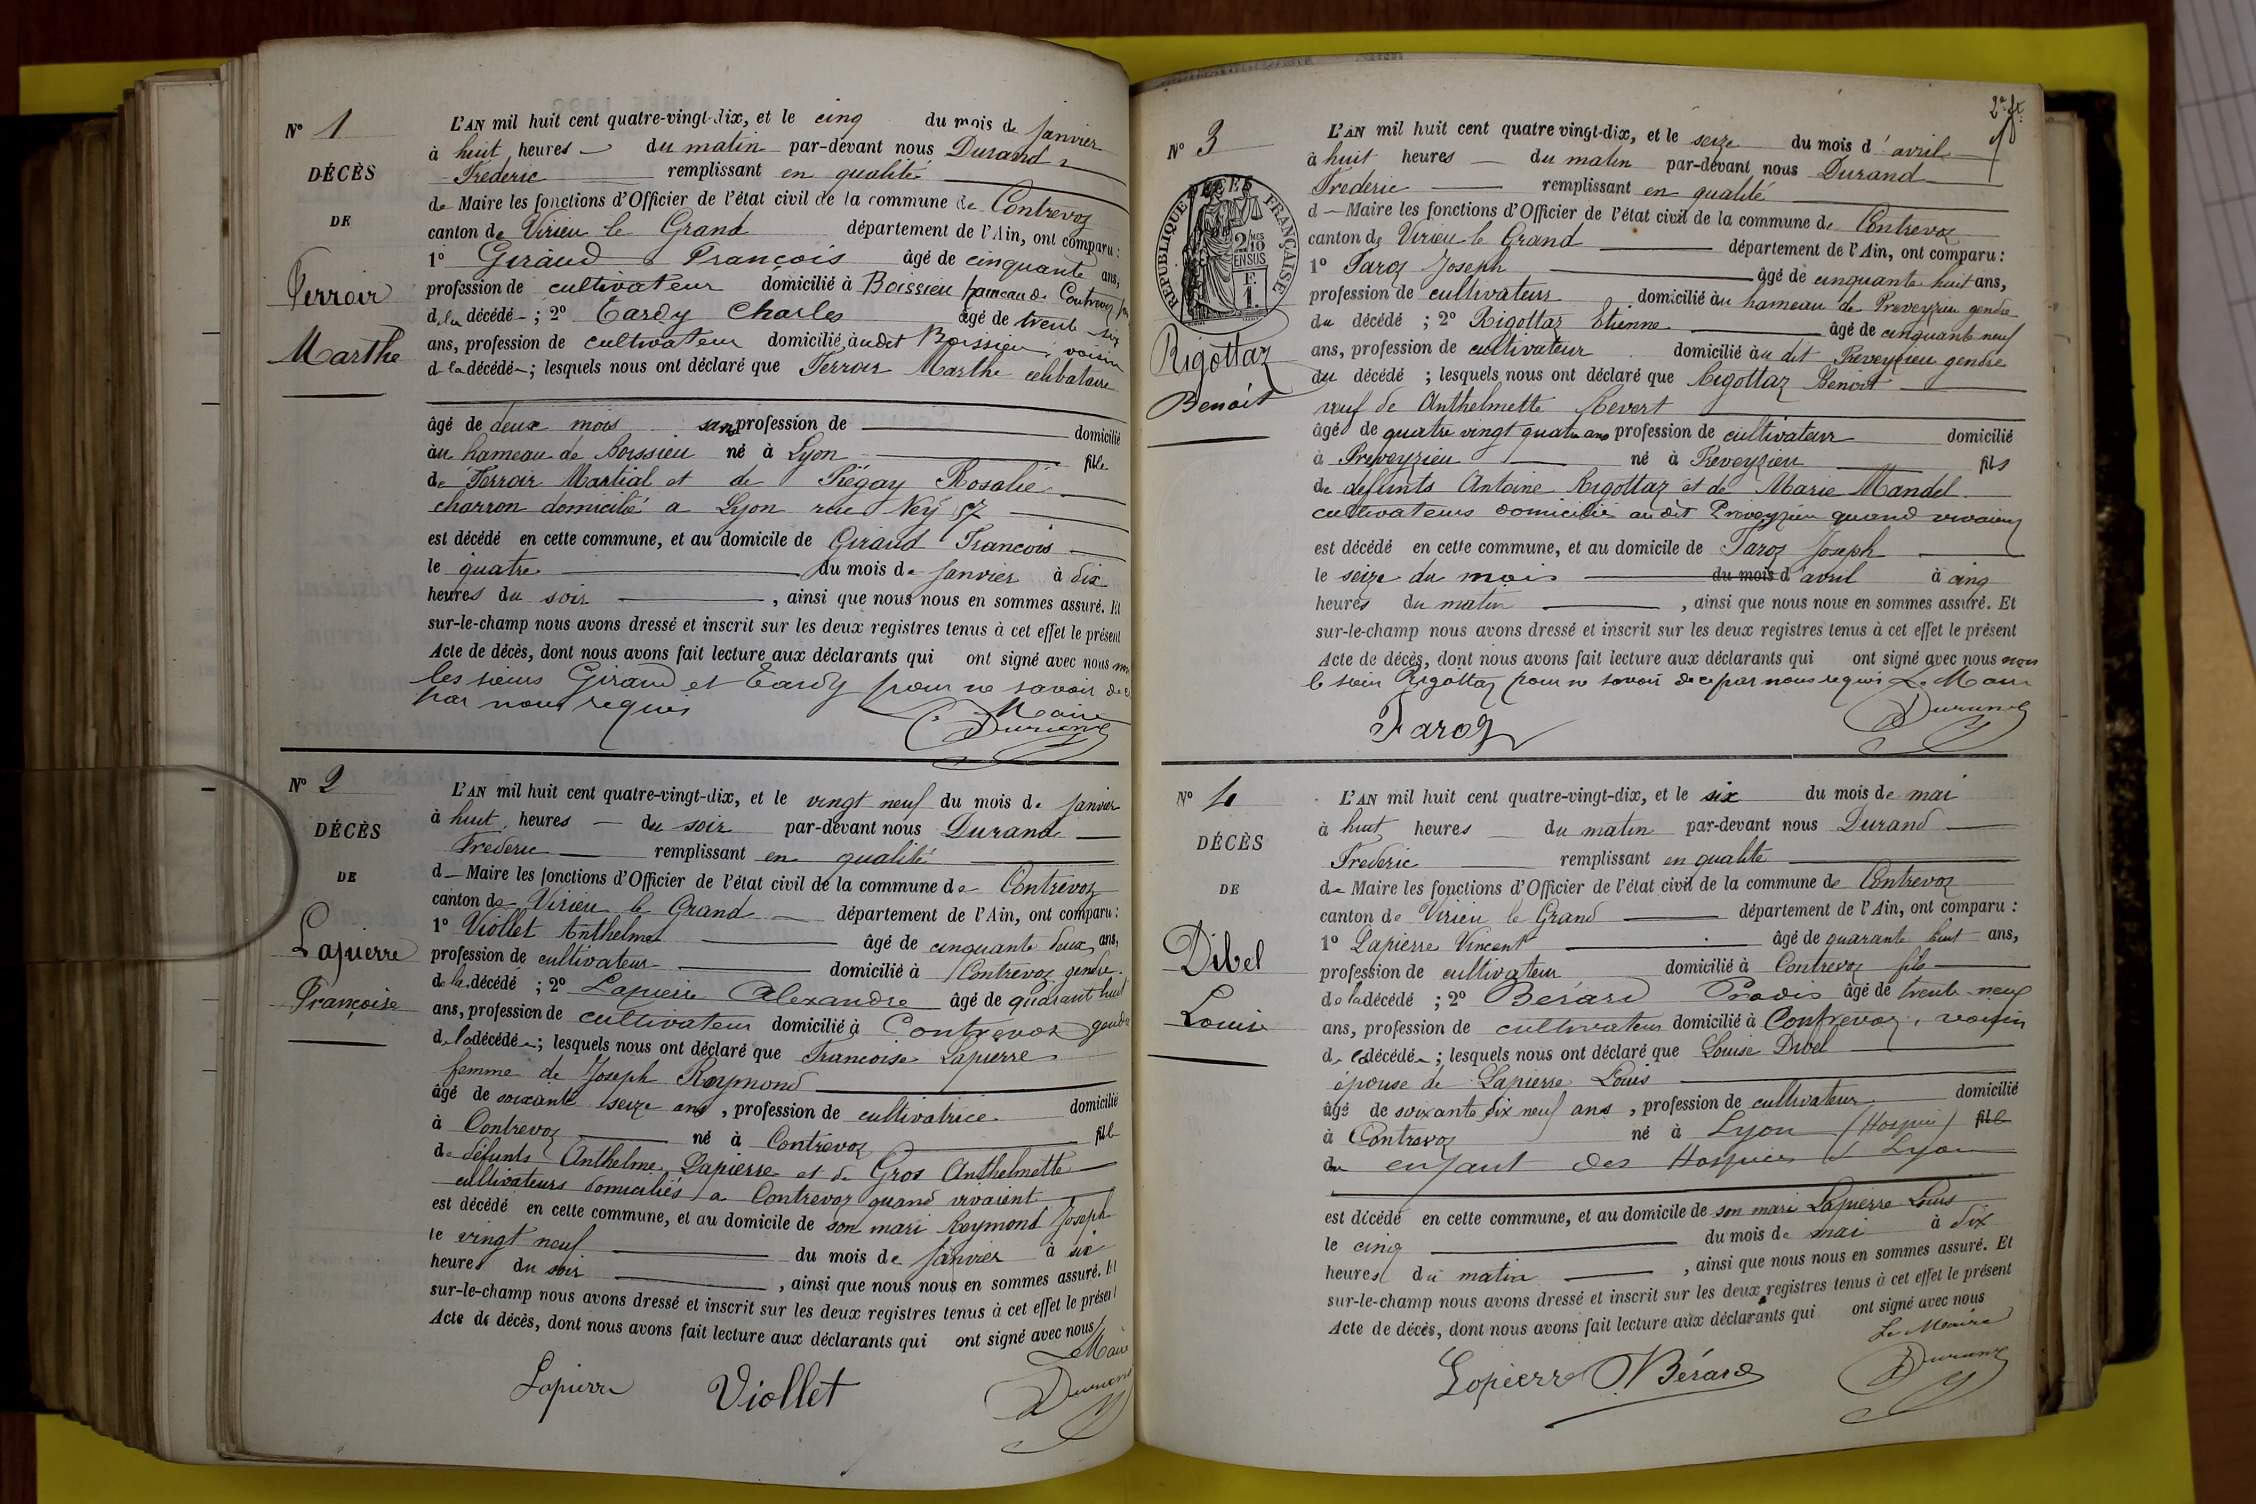 N° 1
DÉCÈS
DE
Ferroir
Marthe
L'AN mil huit cent quatre-vingt-dix, et le cinq du mois de Janvier
à huit heures du matin par-devant nous Durand
Frederic remplissant en qualité
de Maire les fonctions d'Officier de l'état civil de la commune de Contrevoz
canton de Virieu le Grand département de l'Ain, ont comparu :
1° Giraud François âgé de cinquante ans,
profession de cultivateur domicilié à Boissieu hameau de Contrevoz
de la décédé ; 2° Tardy Charles âgé de trente six
ans, profession de cultivateur domicilié audit Boissieu, voisin
de la décédé ; lesquels nous ont déclaré que Ferroir Marthe celibataire
âgé de deux mois sans profession de domicilié
au hameau de Boissieu né à Lyon fille
de Ferroir Martial et de Piégay Rosalie
charron domicilié a Lyon rue Ney 57
est décédé en cette commune, et au domicile de Giraud François
le quatre du mois de Janvier à dix
heures du soir, ainsi que nous nous en sommes assuré. Et
sur-le-champ nous avons dressé et inscrit sur les deux registres tenus à cet effet le présent
Acte de décès, dont nous avons fait lecture aux déclarants qui ont signé avec nous non
les sieurs Giraud et Tardy pour ne savoir de ce
par nous requis
Maire
Durand
N° 2
DÉCÈS
DE
Lapierre
Françoise
L'AN mil huit cent quatre-vingt-dix, et le vingt neuf du mois de Janvier
à huit heures du soir par-devant nous Durand
Frederic remplissant en qualité
d Maire les fonctions d'Officier de l'état civil de la commune de Contrevoz
canton de Virieu le Grand département de l'Ain, ont comparu :
1° Viollet Anthelme âgé de cinquante deux ans,
profession de cultivateur domicilié à Contrevoz gendre
de la décédé ; 2° Lapierre Alexandre âgé de quarant huit
ans, profession de cultivateur domicilié à Contrevoz gendre
de la décédée ; lesquels nous ont déclaré que Francoise Lapierre
femme de Joseph Reymond
âgé de soixante seize ans, profession de cultivatrice domicilié
à Contrevoz né à Contrevoz fille
de défunts Anthelme Lapierre et de Gros Anthelmette
cultivateurs domiciliés a Contrevoz quand vivaient
est décédé en cette commune, et au domicile de son mari Reymond Joseph
le vingt neuf du mois de Janvier à six
heures du soir, ainsi que nous nous en sommes assuré. Et
sur-le-champ nous avons dressé et inscrit sur les deux registres tenus à cet effet le présent
Acte de décès, dont nous avons fait lecture aux déclarants qui ont signé avec nous
Le Maire
Lapierre Viollet Durand
2e ft
N° 3
RÉPUBLIQUE FRANÇAISE
2/10 MES EN SUS
F. 1.
Rigottaz
Benoit
L'AN mil huit cent quatre vingt-dix, et le seize du mois d'avril
à huit heures du matin par-devant nous Durand
Frederic remplissant en qualité
d Maire les fonctions d'Officier de l'état civil de la commune de Contrevoz
canton de Virieu le Grand département de l'Ain, ont comparu :
1° Taroz Joseph âgé de cinquante huit ans,
profession de cultivateur domicilié au hameau de Preveyzieu gendre
du décédé ; 2° Rigottaz Etienne âgé de cinquante neuf
ans, profession de cultivateur domicilié au dit Preveyzieu gendre
du décédé ; lesquels nous ont déclaré que Rigottaz Benoit
veuf de Anthelmette Revert
âgé de quatre vingt quatre ans profession de cultivateur domicilié
à Preveyzieu né à Preveyzieu fils
de defunts Antoine Rigottaz et de Marie Mandel
cultivateurs domiciliés audit Preveyzieu quand vivaient
est décédé en cette commune, et au domicile de Taroz Joseph
le seize du mois du mois d'avril à cinq
heures du matin, ainsi que nous nous en sommes assuré. Et
sur-le-champ nous avons dressé et inscrit sur les deux registres tenus à cet effet le présent
Acte de décès, dont nous avons fait lecture aux déclarants qui ont signé avec nous non
le sieur Rigottaz pour ne savoir de ce par nous requis Le Maire
Taroz Durand
N° 4
DÉCÈS
DE
Dibel
Louise
L'AN mil huit cent quatre-vingt-dix, et le six du mois de mai
à huit heures du matin par-devant nous Durand
Frederic remplissant en qualité
de Maire les fonctions d'Officier de l'état civil de la commune de Contrevoz
canton de Virieu le Grand département de l'Ain, ont comparu :
1° Lapierre Vincent âgé de quarante huit ans,
profession de cultivateur domicilié à Contrevoz fils
de la décédé ; 2° Berard Provis âgé de trente neuf
ans, profession de cultivateur domicilié à Contrevoz, voisin
de la décédée ; lesquels nous ont déclaré que Louise Dibel
épouse de Lapierre Louis
âgé de soixante dix neuf ans, profession de cultivateur domicilié
à Contrevoz né à Lyon (Hospice) fille
du enfant des Hospices d Lyon
est décédé en cette commune, et au domicile de son mari Lapierre Louis
le cinq du mois de mai à dix
heures du matin, ainsi que nous nous en sommes assuré. Et
sur-le-champ nous avons dressé et inscrit sur les deux registres tenus à cet effet le présent
Acte de décès, dont nous avons fait lecture aux déclarants qui ont signé avec nous
Le Maire
Lapierre Bérard Durand